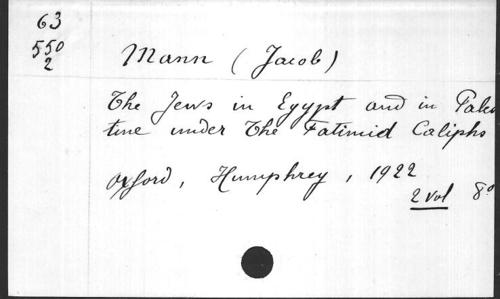 63
550
2
Mann (Jacob)
The Jews in Egypt and in Pales
tine under The Fatimid Caliphs
Oxford, Humphrey, 1922
2 vol 8°